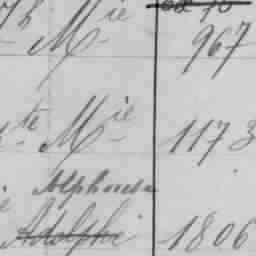 Mie 967
te Mie 1173
Alphonse
Adolphe 1806